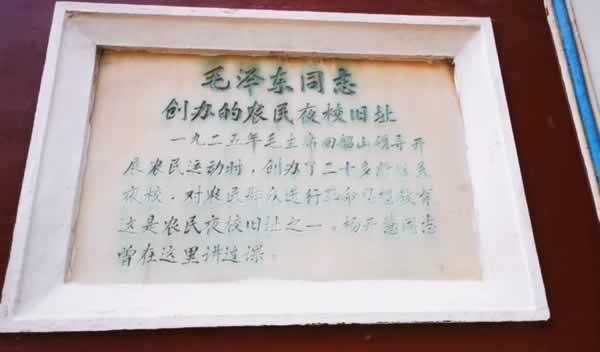 毛泽东同志
创办的农民夜校旧址
一九二五年毛主席回韶山领导开
展农民运动时，创办了二十多所农民
夜校，对农民群众进行革命思想教育
这是农民夜校旧址之一。杨开慧同志
曾在这里讲过课。